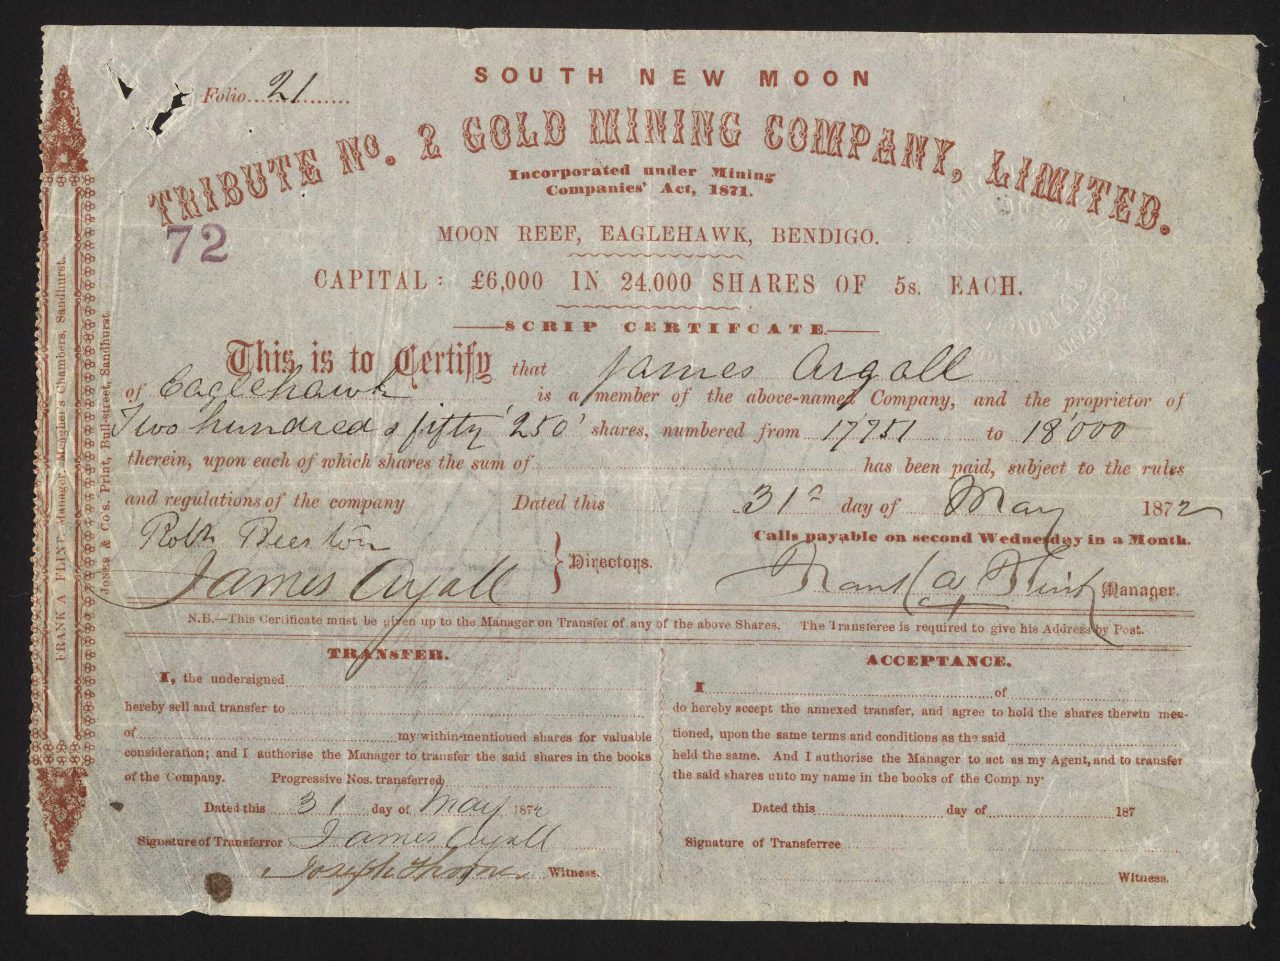 Folio 21
SOUTH NEW MOON
TRIBUTE No. 2 GOLD MINING COMPANY, LIMITED.
Incorporated under Mining
Companies' Act, 1871.
72
MOON REEF, EAGLEHAWK, BENDIGO.
CAPITAL: £6,000 IN 24,000 SHARES OF 5s. EACH.
SCRIP CERTIFCATE
This is to Certify that James Argall
of Eaglehawk is a member of the above-named Company, and the proprietor of
Two hundred & fifty '250' shares, numbered from 17'751 to 18'000
therein, upon each of which shares the sum of has been paid, subject to the rules
and regulations of the company Dated this 31st day of May 1872
Calls payable on second Wednesday in a Month.
Robt
James Argall
Directors.
Frank A Flint Manager.
N.B.—This Certificate must be given up to the Manager on Transfer of any of the above Shares. The Transferee is required to give his Address by Post.
TRANSFER.
I, the undersigned
hereby sell and transfer to
of my within-mentioned shares for valuable
consideration; and I authorise the Manager to transfer the said shares in the books
of the Company. Progressive Nos. transferred
Dated this 31 day of May 1872
Signature of Transferror James Argall
Joseph Witness.
ACCEPTANCE.
I of
do hereby accept the annexed transfer, and agree to hold the shares therein men-
tioned, upon the same terms and conditions as the said
held the same. And I authorise the Manager to act as my Agent, and to transfer
the said shares unto my name in the books of the Comp ny
Dated this day of 187
Signature of Transferree
Witness.
FRANK A FLINT Manager, Meagher's Chambers, Sandhurst.
JONES & Co's. Print, Bull-street, Sandhurst.